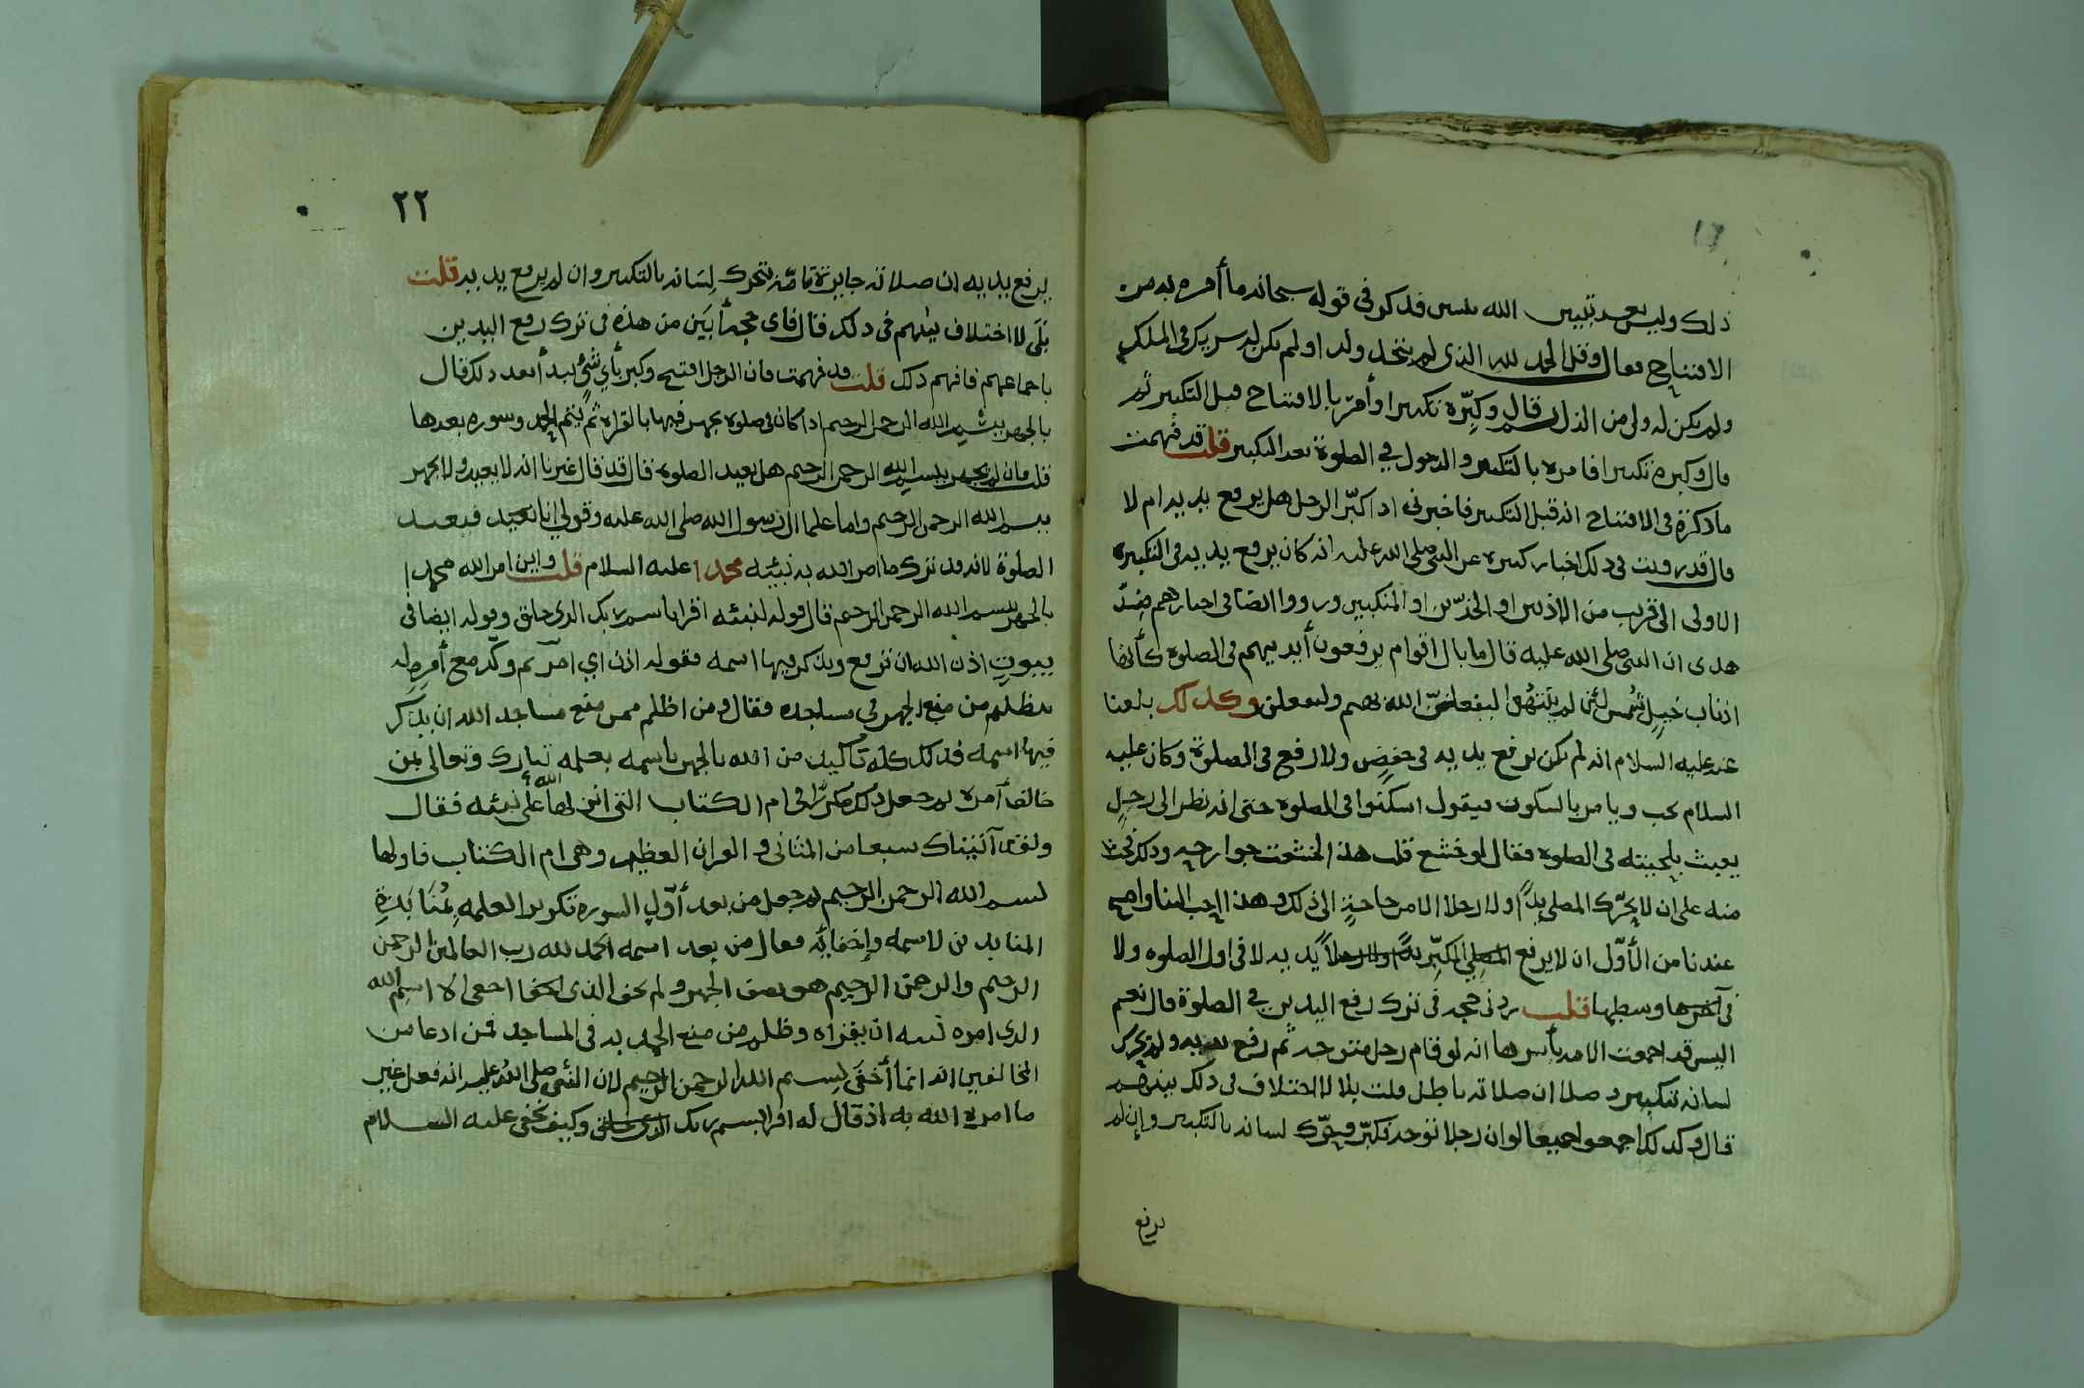 ذلك وليس بعد تبيين الله تبيين فذكر في قوله سبحانه ما أمره به من
الافتتاح فقال وقل الحمد لله الذي لم يتخذ ولدا ولم يكن له شريك في الملك
ولم يكن له ولي من الذل ثم قال وكبّره تكبيرا وأمر بالافتتاح قبل التكبير ثم
قال وكبره تكبيرا فأمره بالتكبير والدخول في الصلوة بعد التكبير قلت قد فهمت
ما ذكرت في الافتتاح انه قبل التكبير فاخبرني اذا كبّر الرجل هل يرفع يديه ام لا
قال قد رويت في ذلك اخبار كثيرة عن النبي صلى الله عليه انه كان يرفع يديه في التكبيرة
الاولى الى قريب من الاذنين او الخدّين او المنكبين ورووا ايضا في اخبارهم ضدّ
هذى ان النبي صلى الله عليه قال ما بال اقوام يرفعون أيديهم في الصلوة كأنها
اذناب خيلٍ شُمس لئن لم ينتهوا ليفعلنّ الله بهم وليفعلن وكذلك بلغنا
عنه عليه السلام انه لم يكن يرفع يديه في خفضٍ ولا رفع في الصلوة وكان عليه
السلام يحب ويامر بالسكون فيقول اسكنوا في الصلوة حتى انه نظر الى رجلٍ
يعبث بلحيته في الصلوة فقال لو خشع قلب هذا لخشعت جوارحه وذلك
منه على ان لا يحرّك المصلي يدًا ولا رجلا الا من حاجةٍ الى ذلك وهذا احب الينا واصح
عندنا من الأوّل ان لا يرفع المصلي المكبّر يديه لا في اول الصلوه ولا
في آخرها وسطها قلت زدني حجه في ترك رفع اليدين في الصلوة قال نعم
اليس قد اجمعت الامه بأسرها انه لو قام رجل فتوجه ثم رفع يديه ولم يحرك
لسانه بتكبير وصلا ان صلاته باطل قلت بلا لا اختلاف في ذلك بينهم
قال وكذلك اجمعوا جميعا لو ان رجلا توجه فكبّر فحرّك لسانه بالتكبير وإن لم
يرفع
٢٢
يرفع يديه ان صلاته جايزة تامّة بتحرك لِسَانه بالتكبير وان لم يرفع يديه قلت
بَلَى لا اختلاف بينهم في ذلك قال فاي حجه أبيَن من هذه في ترك رفع اليدين
باجماعهم فافهم ذلك قلت قد فهمت فان الرجل افتتح وكبر بأي شئٍ يبدأ بعد ذلك قال
بالجهر ببسم الله الرحمن الرحيم اذا كان في صلوة يجهر فيها بالقراه ثم يتم الحمد وسوره بعدها
قلت فان لم يجهر ببسم الله الرحمن الرحيم هل يعيد الصلوه قال قد قال غيرنا انه لا يعيد ولا يجهر
ببسم الله الرحمن الرحيم واما علما ال رسول الله صلى الله عليه وقولي انا يعيد فيعيد
الصلوة لانه قد ترك ما امر الله به نبيّه محمدا عليه السلام قلت واين امر الله محمدا
بالجهر ببسم الله الرحمن الرحيم قال قوله لنبيّه اقرا باسم ربك الذي خلق وقوله ايضا في
بيوتٍ اذن الله ان ترفع ويذكر فيها اسمه فقوله اذن اي امر ثم وكّد مع أمرِه له
بظلم من منع الجهر في مساجده فقال ومن اظلم ممن منع مساجد الله ان يذكر
فيها اسمه فذلك كله تاكيد من الله بالجهر باسمه بعلمه تبارك وتعالى بمن
خالف أمره ثم جعل ذلك مكررًا في ام الكتاب التي انزلها الله على نبيّه فقال
ولقد آتيناك سبعا من المثاني والقران العظيم وهي ام الكتاب فاولها
بسم الله الرحمن الرحيم ثم جعل من بعد أوّل السوره تكويرا لعلمه بمُنَابَذةِ
المنابذين لاسمه وإخفايه فقال من بعد اسمه الحمد لله رب العالمين الرحمن
الرحيم والرحمن الرحيم هو نصف الجهر ولم يخف الذي اخفا اخفى الا اسم الله
الذي امره نبيه ان يقراه وظلم من منع الجهر به في المساجد فمن ادعا من
المخالفين انه انما أخفَى بسم الله الرحمن الرحيم لان النبي صلى الله عليه انه فعل غير
ما امره الله به اذ قال له اقرا بسم ربك الذي خلق وكيف يخفى عليه السلام